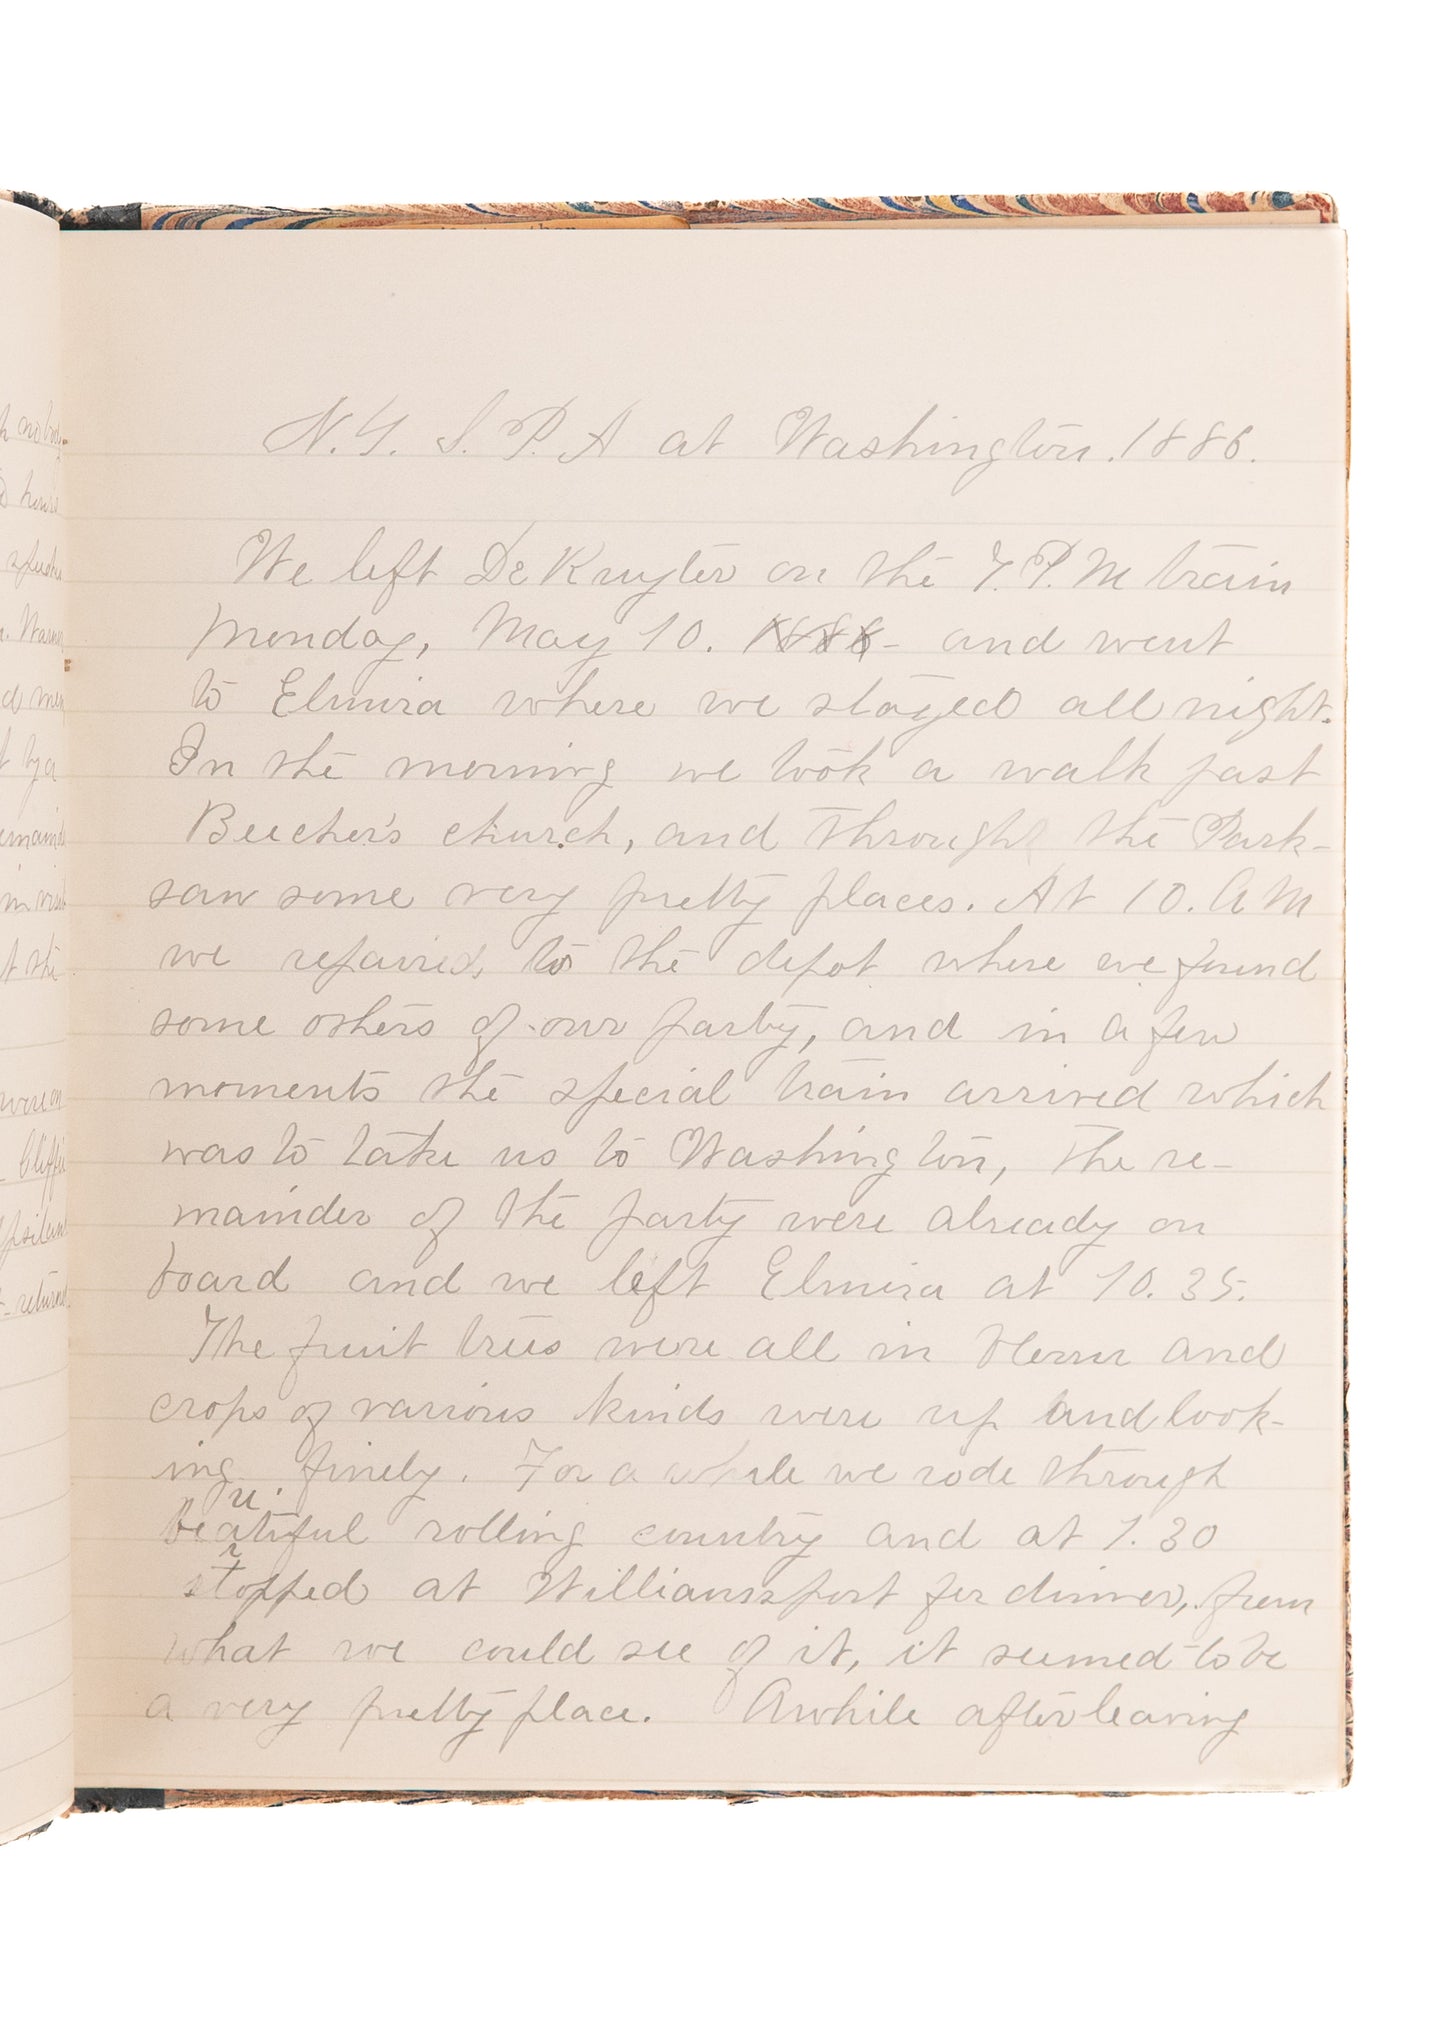 N.Y. S. P. A at Washington. 1886.
We left DeRuyter on the 7. P. M train
Monday, May 10. 1886- and went
to Elmira where we stayed all night.
In the morning we took a walk past
Beecher's church, and through the Park-
saw some very pretty places. At 10. A M
we repaired, to the depot where we found
some others of our party, and in a few
moments the special train arrived which
was to take us to Washington, The re-
mainder of the party were already on
board and we left Elmira at 10. 35.
The fruit trees were all in bloom and
crops of various kinds were up and look-
ing finely. For a while we rode through
beautiful rolling country and at 1. 30
stopped at Williamsport for dinner, from
what we could see of it, it seemed to be
a very pretty place. Awhile after leaving